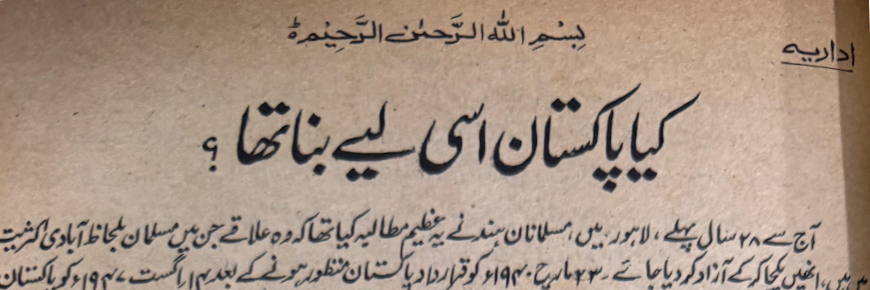 اداریہ
بِسْمِ اللہِ الرَّحمٰنِ الرَّحِیْمِ ؕ
کیا پاکستان اسی لیے بنا تھا ؟
آج سے ۲۸ سال پہلے، لاہور میں، مسلمانان ہند نے یہ عظیم مطالبہ کیا تھا کہ وہ علاقے جن میں مسلمان بلحاظ آبادی اکثریت
میں ہیں، انھیں یکجا کر کے آزاد کر دیا جائے ۔ ۲۳ مارچ ۱۹۴۰ء کو قرارداد پاکستان منظور ہونے کے بعد ۱۴ اگست ۱۹۴۷ء کو پاکستان